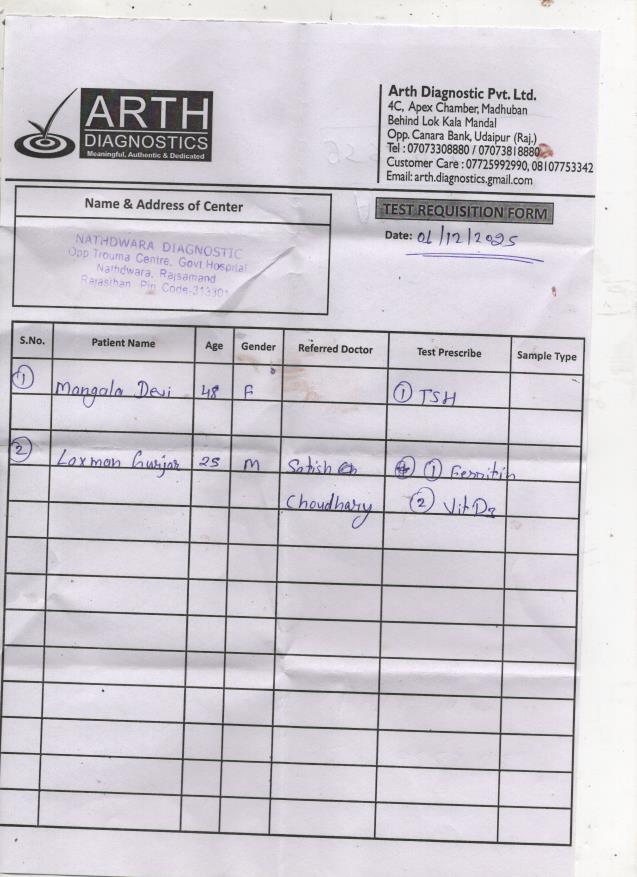 ARTH
DIAGNOSTICS
Meaningful, Authentic & Dedicated
Arth Diagnostic Pvt. Ltd.
4C, Apex Chamber, Madhuban
Behind Lok Kala Mandal
Opp. Canara Bank, Udaipur (Raj.)
Tel : 07073308880 / 07073818880
Customer Care : 07725992990, 08107753342
Email: arth.diagnostics.gmail.com
Name & Address of Center
NATHDWARA DIAGNOSTIC
Opp Trouma Centre, Govt Hospital
Nathdwara, Rajsamand
Rajasthan Pin Code-313301
TEST REQUISITION FORM
Date: 01/12/2025
S.No. Patient Name Age Gender Referred Doctor Test Prescribe Sample Type
1 Mangala Devi 48 F 1 TSH
2 Laxman Gurjar 25 M Satish 1 Ferritin
Choudhary 2 Vit D3